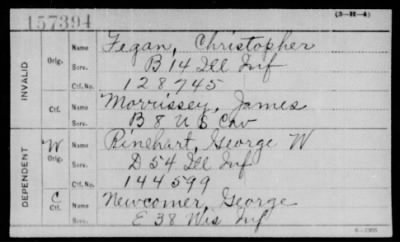 157394
(3-H-4)
INVALID
Orig.
Name Fegan, Christopher
Serv. B 14 Ill Inf
Ctf. No. 128745
Ctf.
Name Morrissey, James
Serv. B 8 U S Cav
DEPENDENT
W
Orig.
Name Rinehart, George W
Serv. D 54 Ill Inf
Ctf. No. 144599
C
Ctf.
Name Newcomer, George
Serv. E 38 Wis Inf